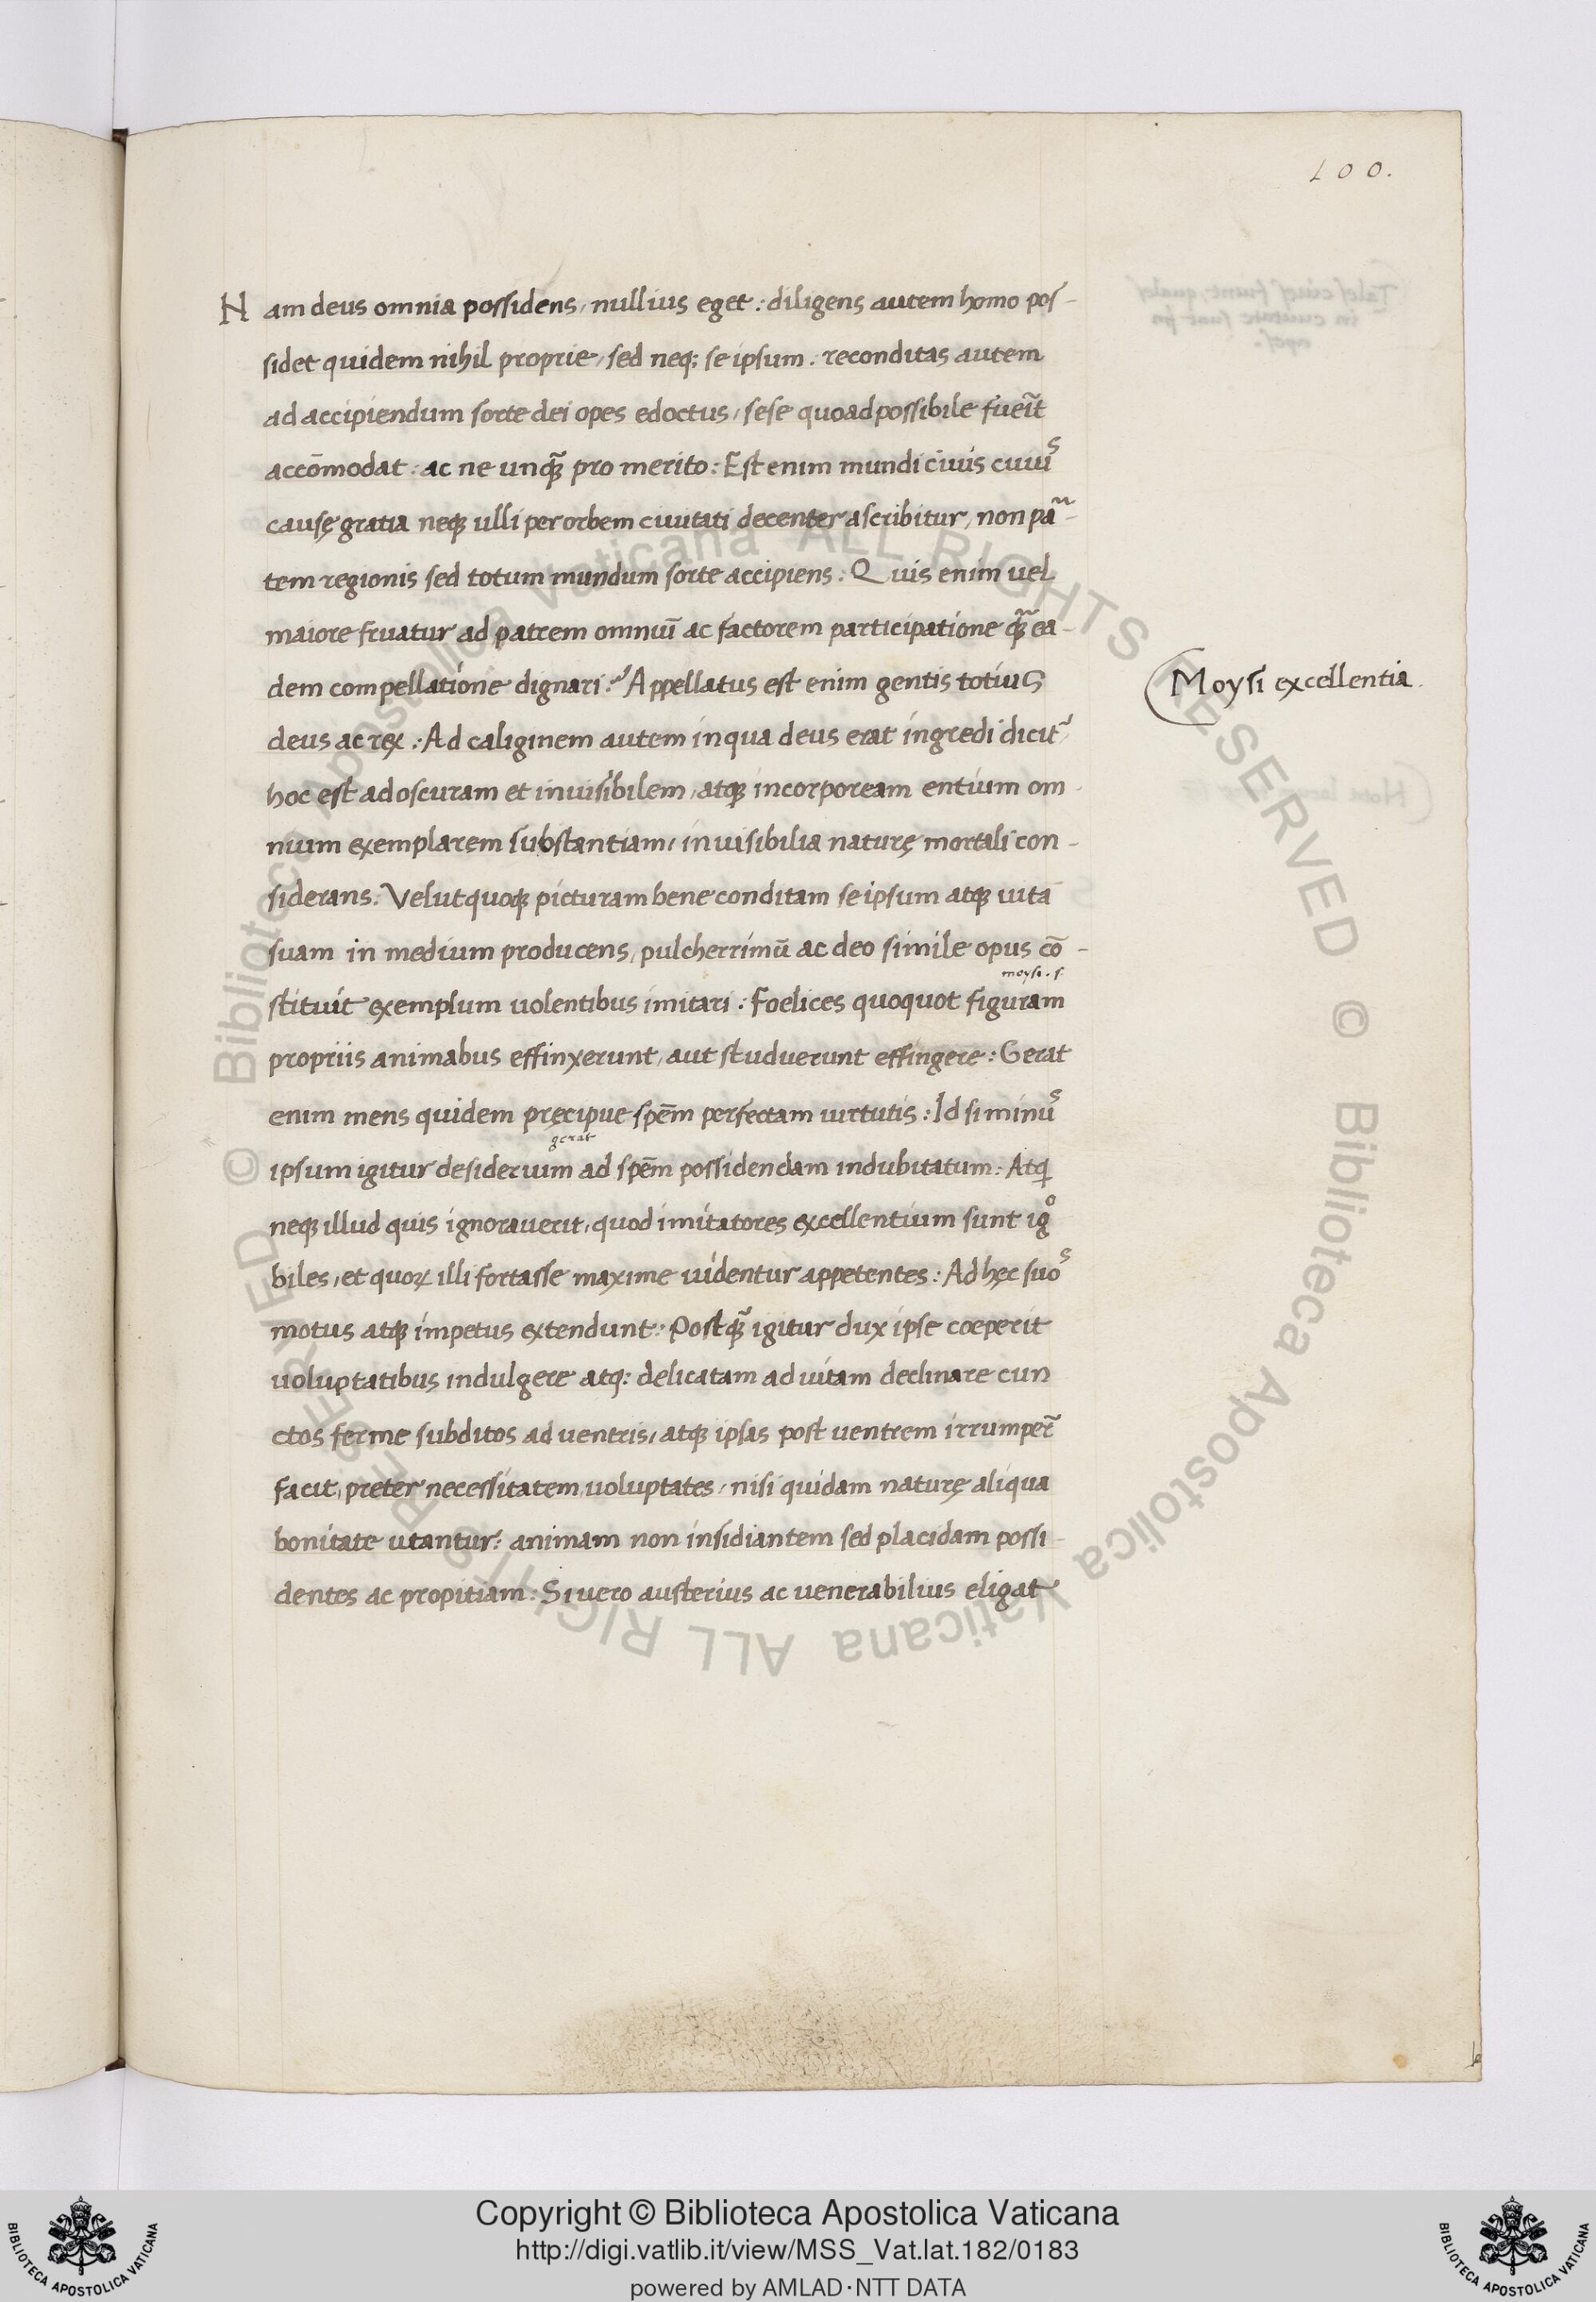 100.
Nam deus omnia possidens, nullius eget: diligens autem homo pos-
sidet quidem nihil proprie, sed neq; se ipsum. reconditas autem
ad accipiendum sorte dei opes edoctus, sese quoad possibile fuei͂t
accōmodat: ac ne unqꝫ̃ pro merito: Est enim mundi ciuis cuiuˢ
causę gratia neqꝫ ulli per orbem ciuitati decenter ascribitur, non pa͂-
tem regionis sed totum mundum sorte accipiens: Quis enim uel
maiore fruatur ad patrem omniū ac factorem participatione qꝫ̃ ea-
dem compellatione dignari? Appellatus est enim gentis totius
Moysi excellentia.
deus ac rex: Ad caliginem autem in qua deus erat ingredi dicit᷑
hoc est ad oscuram et inuisibilem, atqꝫ incorpoream entium om-
nium exemplarem substantiam, inuisibilia naturę mortali con-
siderans: Velut quoqꝫ picturam bene conditam se ipsum atqꝫ uitā
suam in medium producens, pulcherrimū ac deo simile opus cō-
moysi. s.
stituit exemplum uolentibus imitari: Foelices quoquot figuram
propriis animabus effinxerunt, aut studuerunt effingere: Gerat
enim mens quidem pręcipue spēm perfectam uirtutis: Id si minuˢ
gerat
ipsum igitur desiderium ad spēm possidendam indubitatum: Atqꝫ
neqꝫ illud quis ignorauerit, quod imitatores excellentium sunt igº
biles, et quoꝝ illi fortasse maxime uidentur appetentes: Ad hęc suoˢ
motus atqꝫ impetus extendunt: Postqꝫ̃ igitur dux ipse coeperit
uoluptatibus indulgere atq: delicatam ad uitam declinare cun
ctos ferme subditos ad uentris, atqꝫ ipsas post uentrem irrumper͂
facit, preter necessitatem uoluptates, nisi quidam naturę aliqua
bonitate utantur: animam non insidiantem sed placidam possi-
dentes ac propitiam: Si uero austerius ac uenerabilius eligat
© Biblioteca Apostolica Vaticana ALL RIGHTS RESERVED © Biblioteca Apostolica Vaticana ALL RIGHTS RESERVED
Copyright © Biblioteca Apostolica Vaticana
http://digi.vatlib.it/view/MSS_Vat.lat.182/0183
powered by AMLAD·NTT DATA
BIBLIOTECA APOSTOLICA VATICANA
BIBLIOTECA APOSTOLICA VATICANA